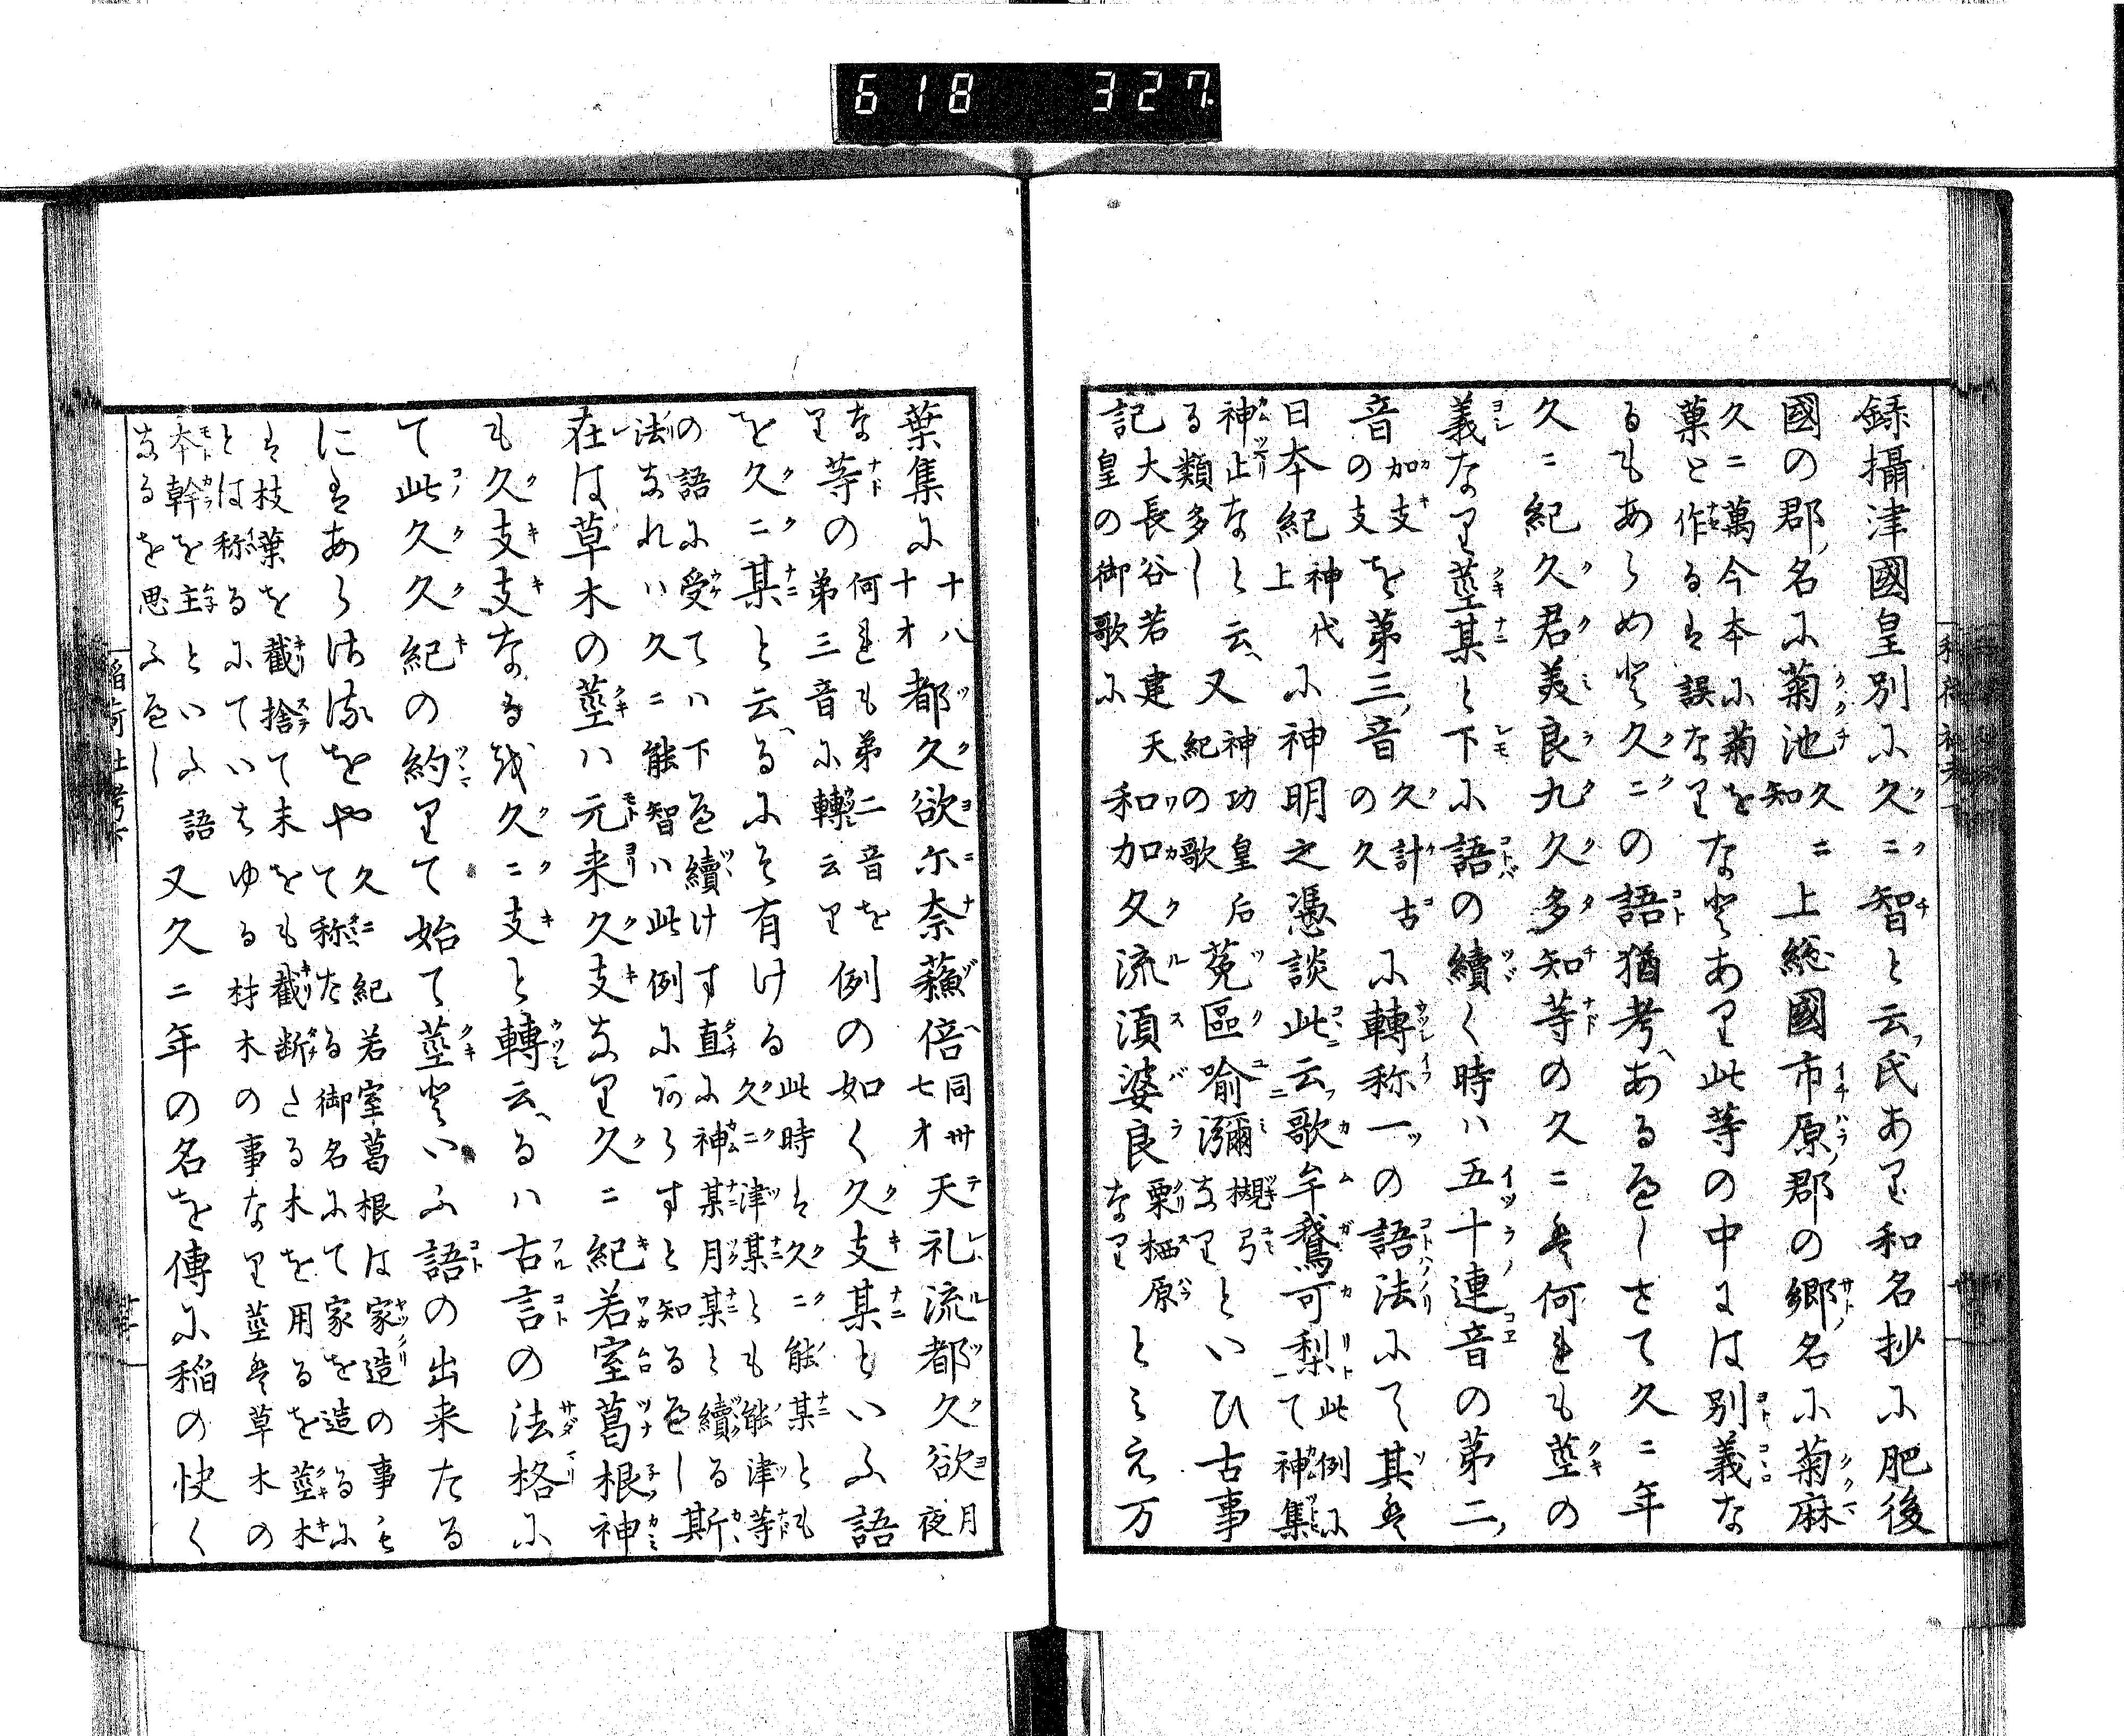 6 18 327.
録攝津國皇別に久々智と云氏あり和名抄に肥後
國の郡名に菊池久々知上総國市原郡の郷名に菊麻
久々萬今本に菊を菓と作るは誤なりなどあり此等の中には別義な
るもあらめど久々の語猶考あるべしさて久々年
久々紀久君美良九久多知等の久々は何れも茎の
義なり茎某と下に語の續く時ハ五十連音の第二
音加支の支を第三音久計古の久に轉称一の語法にて其は
日本紀神代上に神明之憑談此云歌牟鵞可梨此例にて神集
神止なと云る類多し又神功皇后紀の歌菟區喩瀰槻弓なりといひ古事
記大長谷若建天皇の御歌に和加久流須婆良栗栖原なりとみえ万
葉集に十八十オ都久欲尓奈蘓倍同卅七オ天礼流都久欲月夜
なり等の何れも第二音を第三音に轉云り例の如く久支某といふ語
を久々某と云るにそ有ける此時は久々能某とも久々津某とも能津等
の語に受てハ下へ續けす直に神某月某と續る斯
法なれハ久々能智ハ此例にあらすと知るべし
在は草木の茎ハ元来久支なり久々紀若室葛根神
も久支支なる故久々支と轉云るハ古言の法格に
て此久久紀の約りて始て茎といふ語の出来たる
にはあらぬをや久々紀若室葛根は家造の事もて称たる御名にて家を造るに
は枝葉を截捨て末をも截断たる木を用るを茎木
とは称るにていはゆる材木の事なり茎は草木の
本幹を主といふ語なるを思ふべし又久々年の名を傳に稲の快く
稲荷社考下